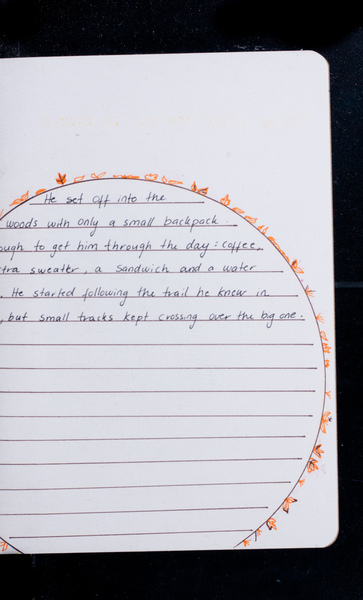 He set off into the
woods with only a small backpack.
to get him through the day: coffee,
sweater, a sandwich and a water
. He started following the trail he knew in
, but small tracks kept crossing over the big one.